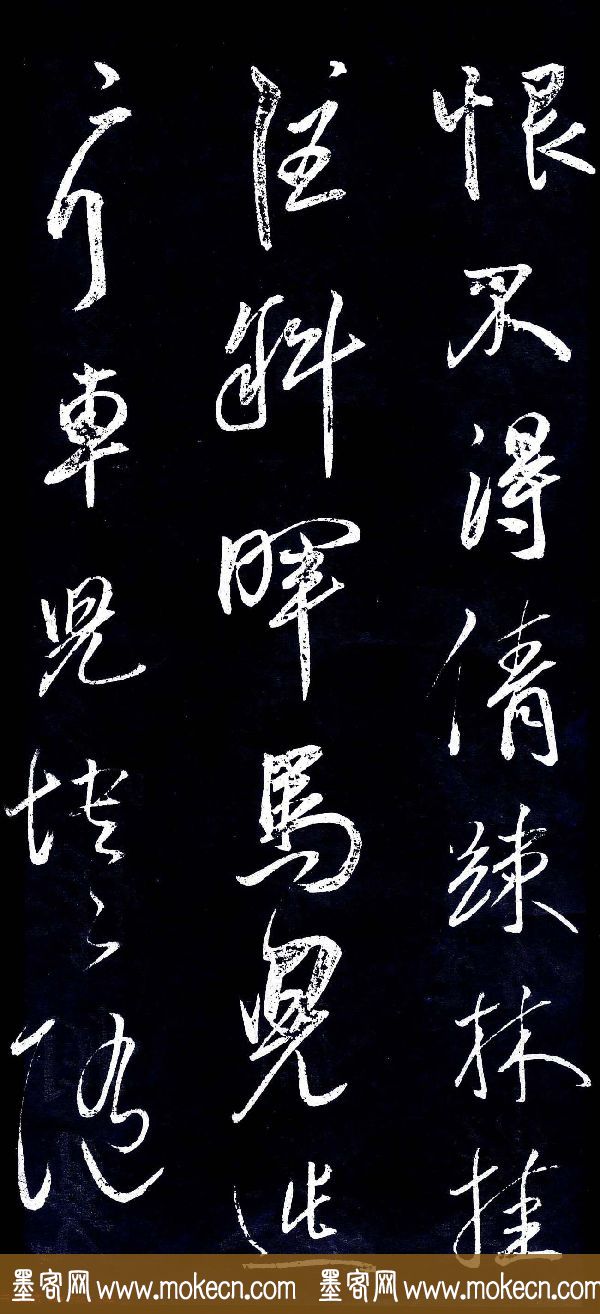 恨不得倩疎林挂
住斜暉馬兒迍
々行車兒快々隨
墨客网 www.mokecn.com 墨客网 www.mokecn.com